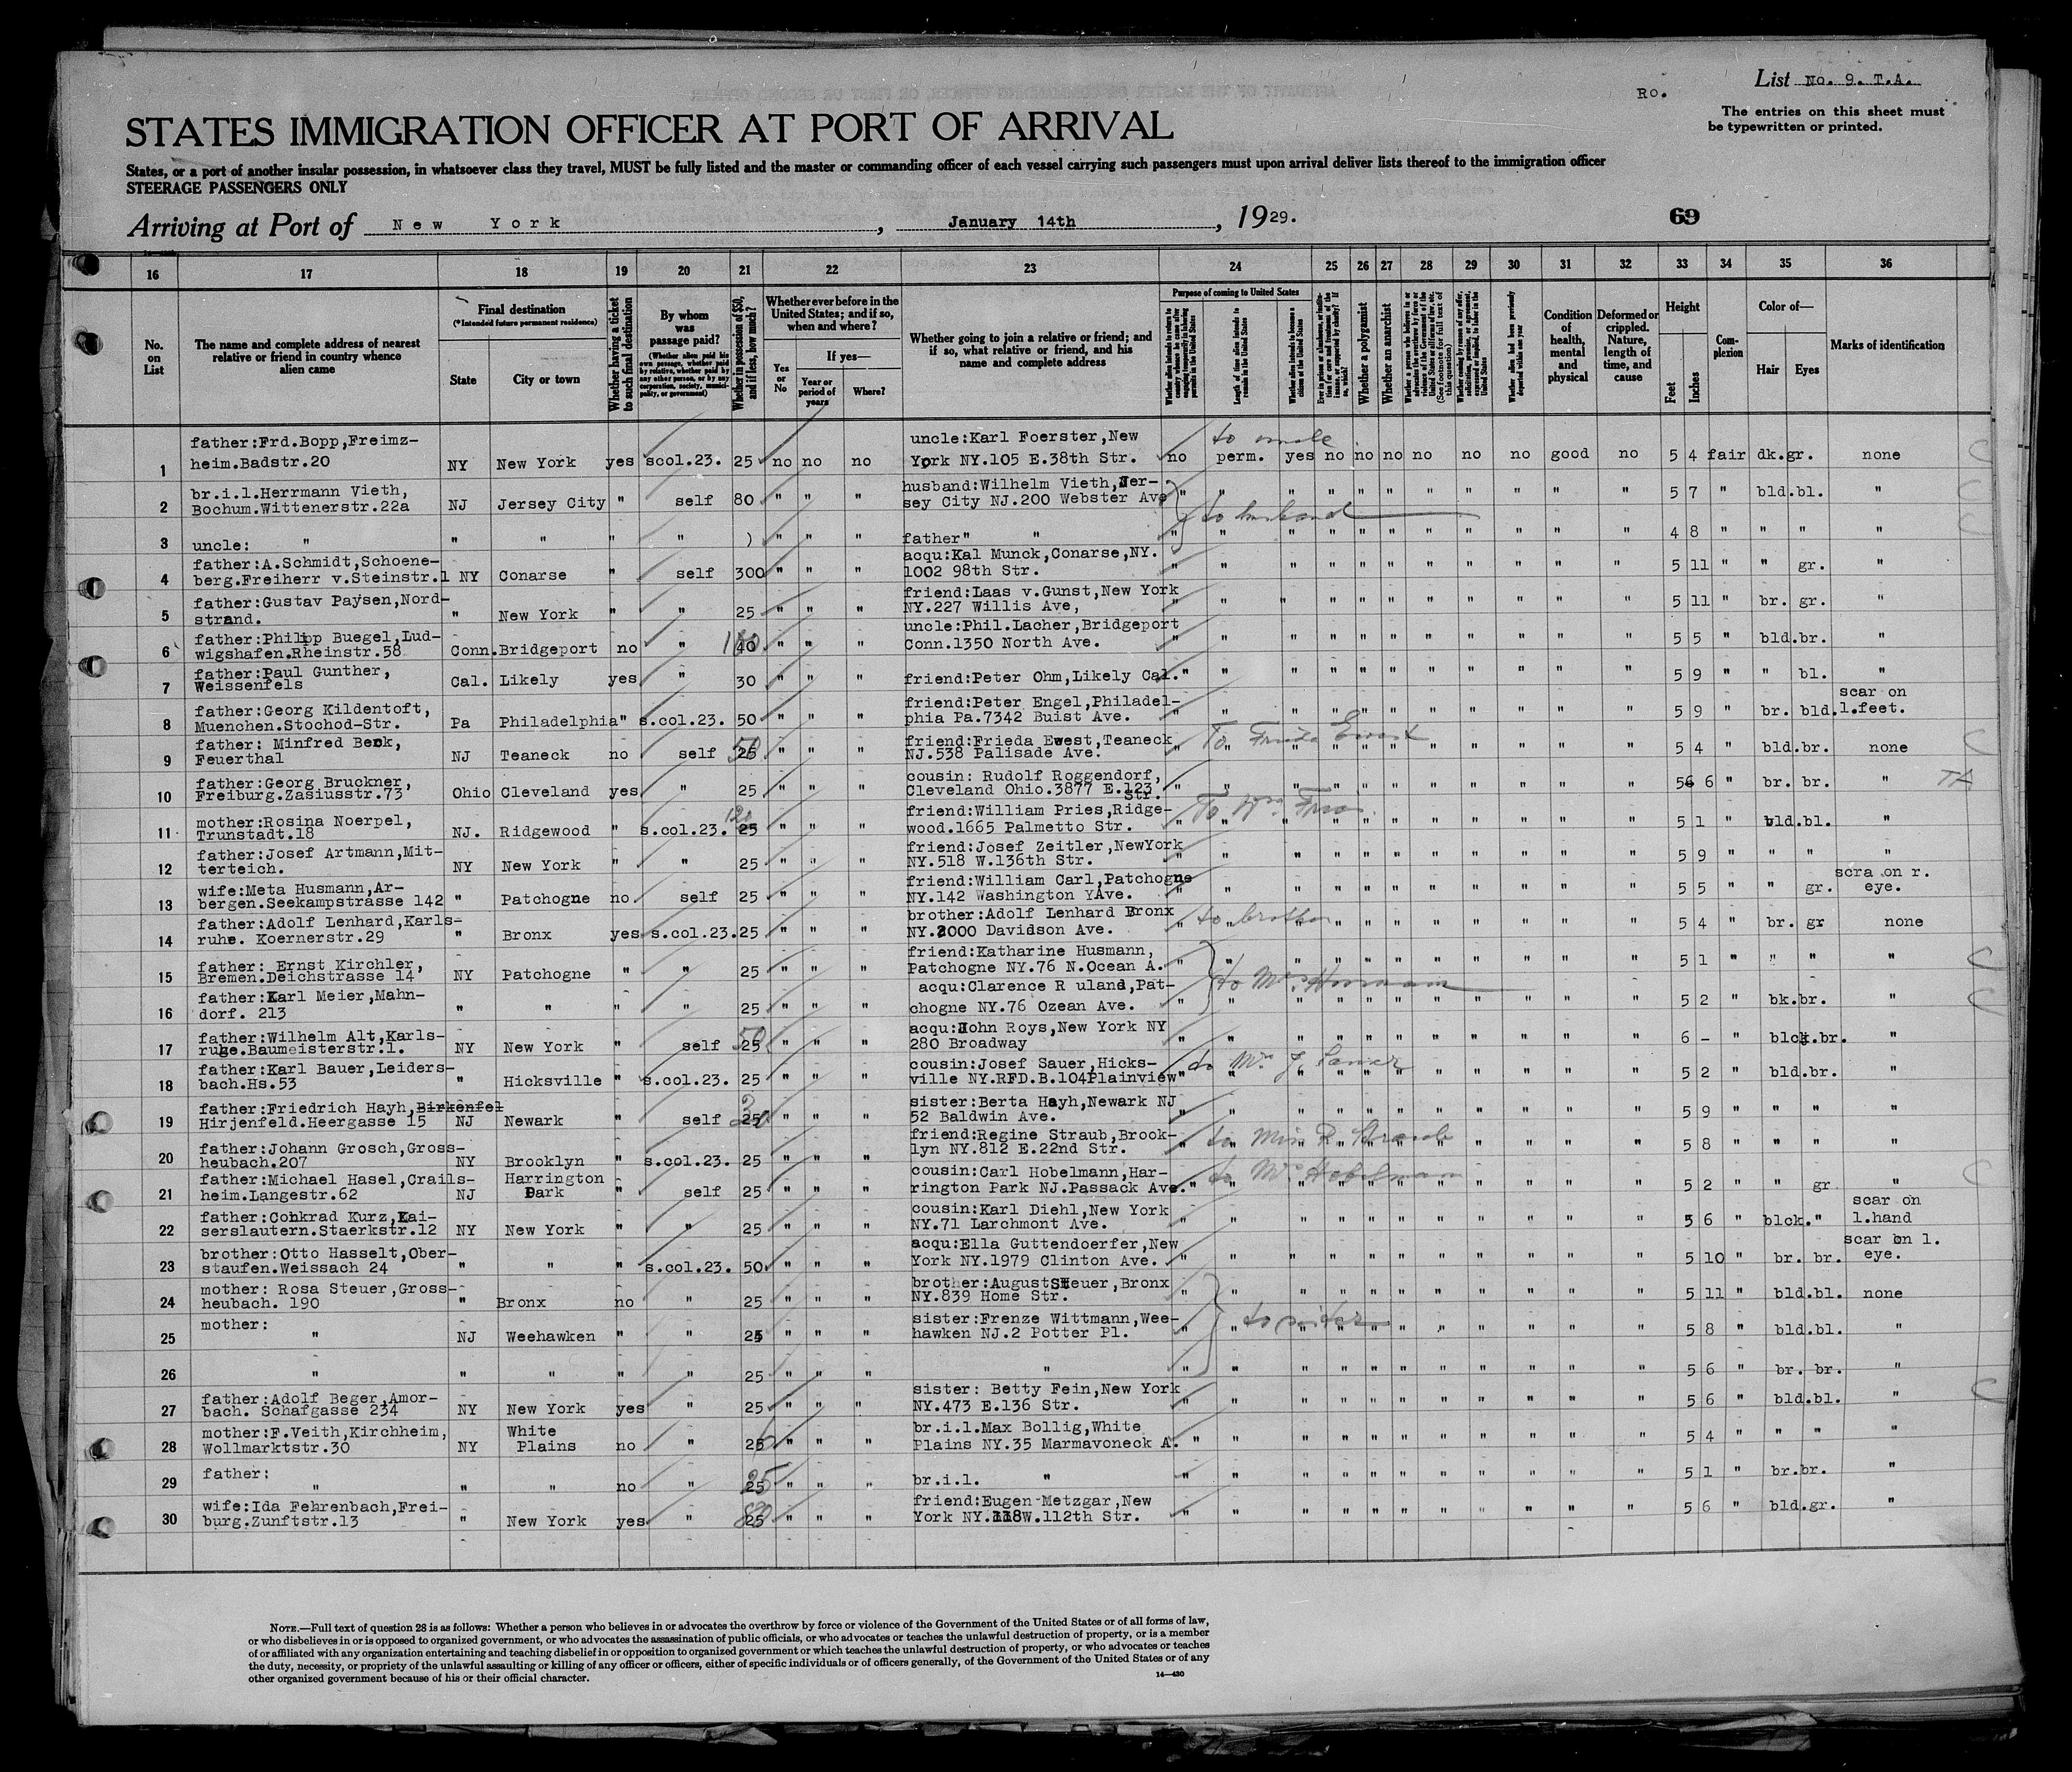 List No. 9. T.A.
Ro.
The entries on this sheet must
be typewritten or printed.
STATES IMMIGRATION OFFICER AT PORT OF ARRIVAL
States, or a port of another insular possession, in whatsoever class they travel, MUST be fully listed and the master or commanding officer of each vessel carrying such passengers must upon arrival deliver lists thereof to the immigration officer
STEERAGE PASSENGERS ONLY
Arriving at Port of New York, January 14th, 1929.
69
16 17 18 19 20 21 22 23 24 25 26 27 28 29 30 31 32 33 34 35 36
No. on List
The name and complete address of nearest relative or friend in country whence alien came
Final destination
(*Intended future permanent residence)
State
City or town
Whether having a ticket to such final destination
By whom was passage paid?
(Whether alien paid his own passage, whether paid by relative, whether paid by any other person, or by any corporation, society, municipality, or government)
Whether in possession of $50, and if less, how much?
Whether ever before in the United States; and if so, when and where?
Yes or No
If yes—
Year or period of years
Where?
Whether going to join a relative or friend; and if so, what relative or friend, and his name and complete address
Purpose of coming to United States
Length of time alien intends to remain in the United States
Whether alien intends to become a citizen of the United States
Whether a polygamist
Whether an anarchist
Condition of health, mental and physical
Deformed or crippled. Nature, length of time, and cause
Height
Feet
Inches
Complexion
Color of—
Hair
Eyes
Marks of identification
1 father:Frd.Bopp,Freimz-
heim.Badstr.20 NY New York yes scol.23. 25 no no no uncle:Karl Foerster,New
York NY.105 E.38th Str. no perm. yes no no no no no no good no 5 4 fair dk.gr. none
to uncle
2 br.i.l.Herrmann Vieth,
Bochum.Wittenerstr.22a NJ Jersey City " self 80 " " " husband:Wilhelm Vieth,Jer-
sey City NJ.200 Webster Ave " " " " " " " " " " " 5 7 " bld.bl. "
to husband
3 uncle: " " " " " ) " " " father" " " " " " " " " " " " " 4 8 " " " "
4 father:A.Schmidt,Schoene-
berg.Freiherr v.Steinstr.1 NY Conarse " self 300 " " " acqu:Kal Munck,Conarse,NY.
1002 98th Str. " " " " " " " " " " " 5 11 " " gr. "
5 father:Gustav Paysen,Nord-
strand. " New York " " 25 " " " friend:Laas v.Gunst,New York
NY.227 Willis Ave, " " " " " " " " " " " 5 11 " br. gr. "
6 father:Philipp Buegel,Lud-
wigshafen.Rheinstr.58 Conn. Bridgeport no " 40 " " " uncle:Phil.Lacher,Bridgeport
Conn.1350 North Ave. " " " " " " " " " " " 5 5 " bld.br. "
7 father:Paul Gunther,
Weissenfels Cal. Likely yes " 30 " " " friend:Peter Ohm,Likely Cal. " " " " " " " " " " " 5 9 " " bl. "
8 father:Georg Kildentoft,
Muenchen.Stochod-Str. Pa Philadelphia " s.col.23. 50 " " " friend:Peter Engel,Philadel-
phia Pa.7342 Buist Ave. " " " " " " " " " " " 5 9 " br. bld. scar on
l.feet.
9 father: Minfred Beck,
Feuerthal NJ Teaneck no self 50 25 " " " friend:Frieda Ewest,Teaneck
NJ.538 Palisade Ave. " " " " " " " " " " " 5 4 " bld.br. none
To Frieda Ewest
10 father:Georg Bruckner,
Freiburg.Zasiusstr.73 Ohio Cleveland yes " 25 " " " cousin: Rudolf Roggendorf,
Cleveland Ohio.3877 E.123 Str. " " " " " " " " " " " 5 6 " br. br. "
11 mother:Rosina Noerpel,
Trunstadt.18 NJ. Ridgewood " s.col.23. 25 " " " friend:William Pries,Ridge-
wood.1665 Palmetto Str. " " " " " " " " " " " 5 1 " bld.bl. "
12 father:Josef Artmann,Mit-
terteich. NY New York " " 25 " " " friend:Josef Zeitler,NewYork
NY.518 W.136th Str. " " " " " " " " " " " 5 9 " " " "
13 wife:Meta Husmann,Ar-
bergen.Seekampstrasse 142 " Patchogne no self 25 " " " friend:William Carl,Patchogne
NY.142 Washington YAve. " " " " " " " " " " " 5 5 " " gr. scra on r.
eye.
14 father:Adolf Lenhard,Karls-
ruhe. Koernerstr.29 " Bronx yes s.col.23. 25 " " " brother:Adolf Lenhard Bronx
NY.2000 Davidson Ave. " " " " " " " " " " " 5 4 " br. gr none
to brother
15 father: Ernst Kirchler,
Bremen.Deichstrasse 14 NY Patchogne " " 25 " " " friend:Katharine Husmann,
Patchogne NY.76 N.Ocean A. " " " " " " " " " " " 5 1 " " " "
16 father:Karl Meier,Mahn-
dorf. 213 " " " " 25 " " " acqu:Clarence R uland,Pat-
chogne NY.76 Ozean Ave. " " " " " " " " " " " 5 2 " bk.br. "
17 father:Wilhelm Alt,Karls-
ruge.Baumeisterstr.1. NY New York " self 50 25 " " " acqu:John Roys,New York NY
280 Broadway " " " " " " " " " " " 6 - " blck.br. "
18 father:Karl Bauer,Leiders-
bach.Hs.53 " Hicksville " s.col.23. 25 " " " cousin:Josef Sauer,Hicks-
ville NY.RFD.B.104Plainview " " " " " " " " " " " 5 2 " bld.br. "
19 father:Friedrich Hayh,Birkenfel
Hirjenfeld.Heergasse 15 NJ Newark " self 25 " " " sister:Berta Hayh,Newark NJ
52 Baldwin Ave. " " " " " " " " " " " 5 9 " " " "
20 father:Johann Grosch,Gross-
heubach.207 NY Brooklyn " s.col.23. 25 " " " friend:Regine Straub,Brook-
lyn NY.812 E.22nd Str. " " " " " " " " " " " 5 8 " " " "
to Miss R. Straub
21 father:Michael Hasel,Crails-
heim.Langestr.62 NJ Harrington
Park " self 25 " " " cousin:Carl Hobelmann,Har-
rington Park NJ.Passack Ave. " " " " " " " " " " " 5 2 " " gr "
22 father:Conkrad Kurz,Kai-
serslautern.Staerkstr.12 NY New York " " 25 " " " cousin:Karl Diehl,New York
NY.71 Larchmont Ave. " " " " " " " " " " " 5 6 " blck. " scar on
l.hand
23 brother:Otto Hasselt,Ober-
staufen.Weissach 24 " " " s.col.23. 50 " " " acqu:Ella Guttendoerfer,New
York NY.1979 Clinton Ave. " " " " " " " " " " " 5 10 " br. br. scar on l.
eye.
24 mother: Rosa Steuer,Gross-
heubach. 190 " Bronx no " 25 " " " brother:August Steuer,Bronx
NY.839 Home Str. " " " " " " " " " " " 5 11 " bld.bl. none
25 mother:
" NJ Weehawken " " 25 " " " sister:Frenze Wittmann,Wee-
hawken NJ.2 Potter Pl. " " " " " " " " " " " 5 8 " bld.bl. "
to sister
26 " " " " " 25 " " " " " " " " " " " " " " " 5 6 " br. br. "
27 father:Adolf Beger,Amor-
bach. Schafgasse 234 NY New York yes " 25 " " " sister: Betty Fein,New York
NY.473 E.136 Str. " " " " " " " " " " " 5 6 " bld.bl. "
28 mother:F.Veith,Kirchheim,
Wollmarktstr.30 NY White
Plains no " 25 " " " br.i.l.Max Bollig,White
Plains NY.35 Marmavoneck A. " " " " " " " " " " " 5 4 " " " "
29 father:
" " " no " 25 25 " " " br.i.l. " " " " " " " " " " " " 5 1 " br.br. "
30 wife:Ida Fehrenbach,Frei-
burg.Zunftstr.13 " New York yes " 80 25 " " " friend:Eugen Metzgar,New
York NY.118W.112th Str. " " " " " " " " " " " 5 6 " bld.gr. "
NOTE.—Full text of question 28 is as follows: Whether a person who believes in or advocates the overthrow by force or violence of the Government of the United States or of all forms of law,
or who disbelieves in or is opposed to organized government, or who advocates the assassination of public officials, or who advocates or teaches the unlawful destruction of property, or is a member
of or affiliated with any organization entertaining and teaching disbelief in or opposition to organized government or which teaches the unlawful destruction of property, or who advocates or teaches
the duty, necessity, or propriety of the unlawful assaulting or killing of any officer or officers, either of specific individuals or of officers generally, of the Government of the United States or of any
other organized government because of his or their official character.
14—430